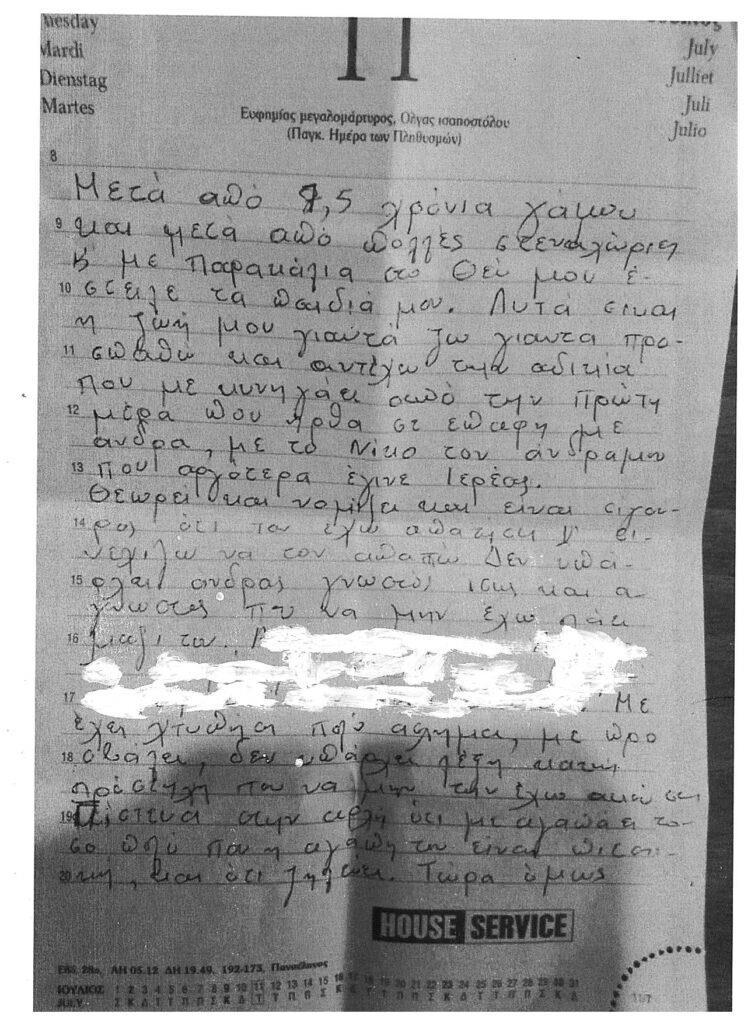 uesday
Mardi
Dienstag
Martes
11
July
Julliet
Juli
Julio
Ευφημίας μεγαλομάρτυρος, Όλγας ισαποστόλου
(Παγκ. Ημέρα των Πληθυσμών)
8
Μετά από 7,5 χρόνια γάμου
9 και μετά από πολλές στεναχώριες
κ με παρακάλια στο Θεό μου έ-
10 στειλε τα παιδιά μου. Αυτά είναι
η ζωή μου γιαυτά ζω γιαυτα προ-
11 σπαθώ και αντέχω την αδικία
που με κυνηγάει από την πρώτη
12 μέρα που ήρθα σε επαφη με
άνδρα, με το Νίκο τον άνδραμου
13 που αργότερα έγινε Ιερέας.
Θεωρεί και νομίζει και είναι σιγου-
14 ρος ότι τον έχω απατησει κ
νεχίζω να τον απατώ Δεν υπά-
15 ρχει άνδρας γνωστός ισως και α-
γνωστος που να μην έχω πάει
16 μαζι του.
17 Με
έχει χτυπήσει πολύ ασχημα, με προ
18 σβάλει, δεν υπάρχει λέξη κακη
που να μην την έχω ακούσει
19 Πίστευα στην αρχή ότι με αγαπάει το-
σο πολύ που η αγάπη του είναι
20 και ότι ζηλεύει. Τώρα όμως
HOUSE SERVICE
Εβδ. 28α, ΑΗ 05.12 ΔΗ 19.49, 192-173, Πανσέληνος
ΙΟΥΛΙΟΣ 1 2 3 4 5 6 7 8 9 10 11 12 13 14 15 16 17 18 19 20 21 22 23 24 25 26 27 28 29 30 31
JULY Σ Κ Δ Τ Τ Π Π Σ Κ Δ Τ Τ Π Π Σ Κ Δ Τ Τ Π Π Σ Κ Δ Τ Τ Π Π Σ Κ Δ
11/7